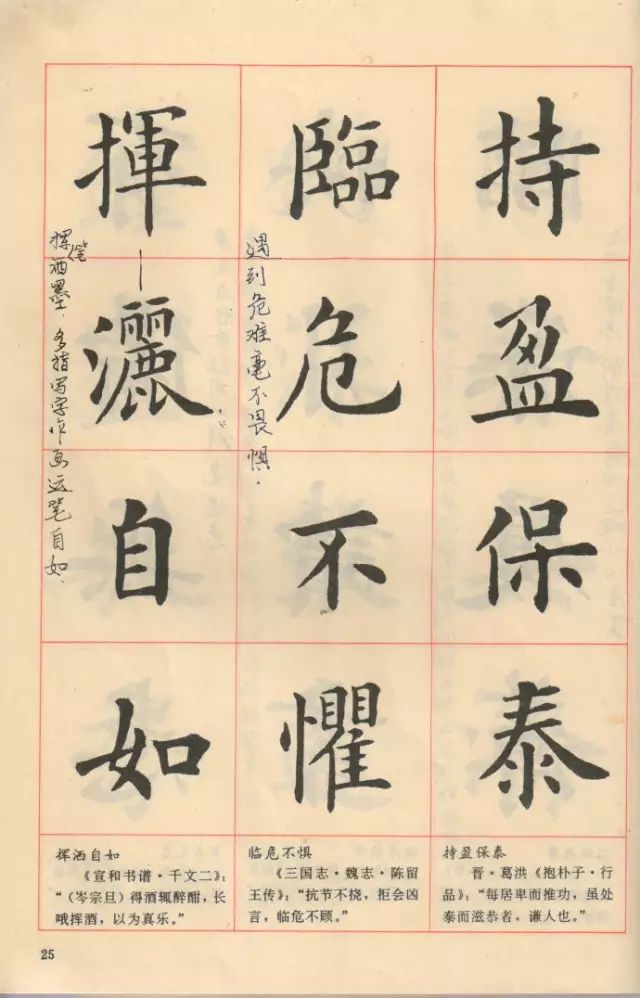 持盈保泰
臨危不懼
揮灑自如
遇到危难毫不畏惧.
挥笔洒墨.多指写字作画运笔自如.
挥洒自如
《宣和书谱·千文二》:
“(岑宗旦)得酒辄醉酣,长
哦挥洒,以为真乐。”
临危不惧
《三国志·魏志·陈留
王传》:“抗节不挠,拒会凶
言,临危不顾。”
持盈保泰
晋·葛洪《抱朴子·行
品》:“每居卑而推功,虽处
泰而滋恭者,谦人也。”
25